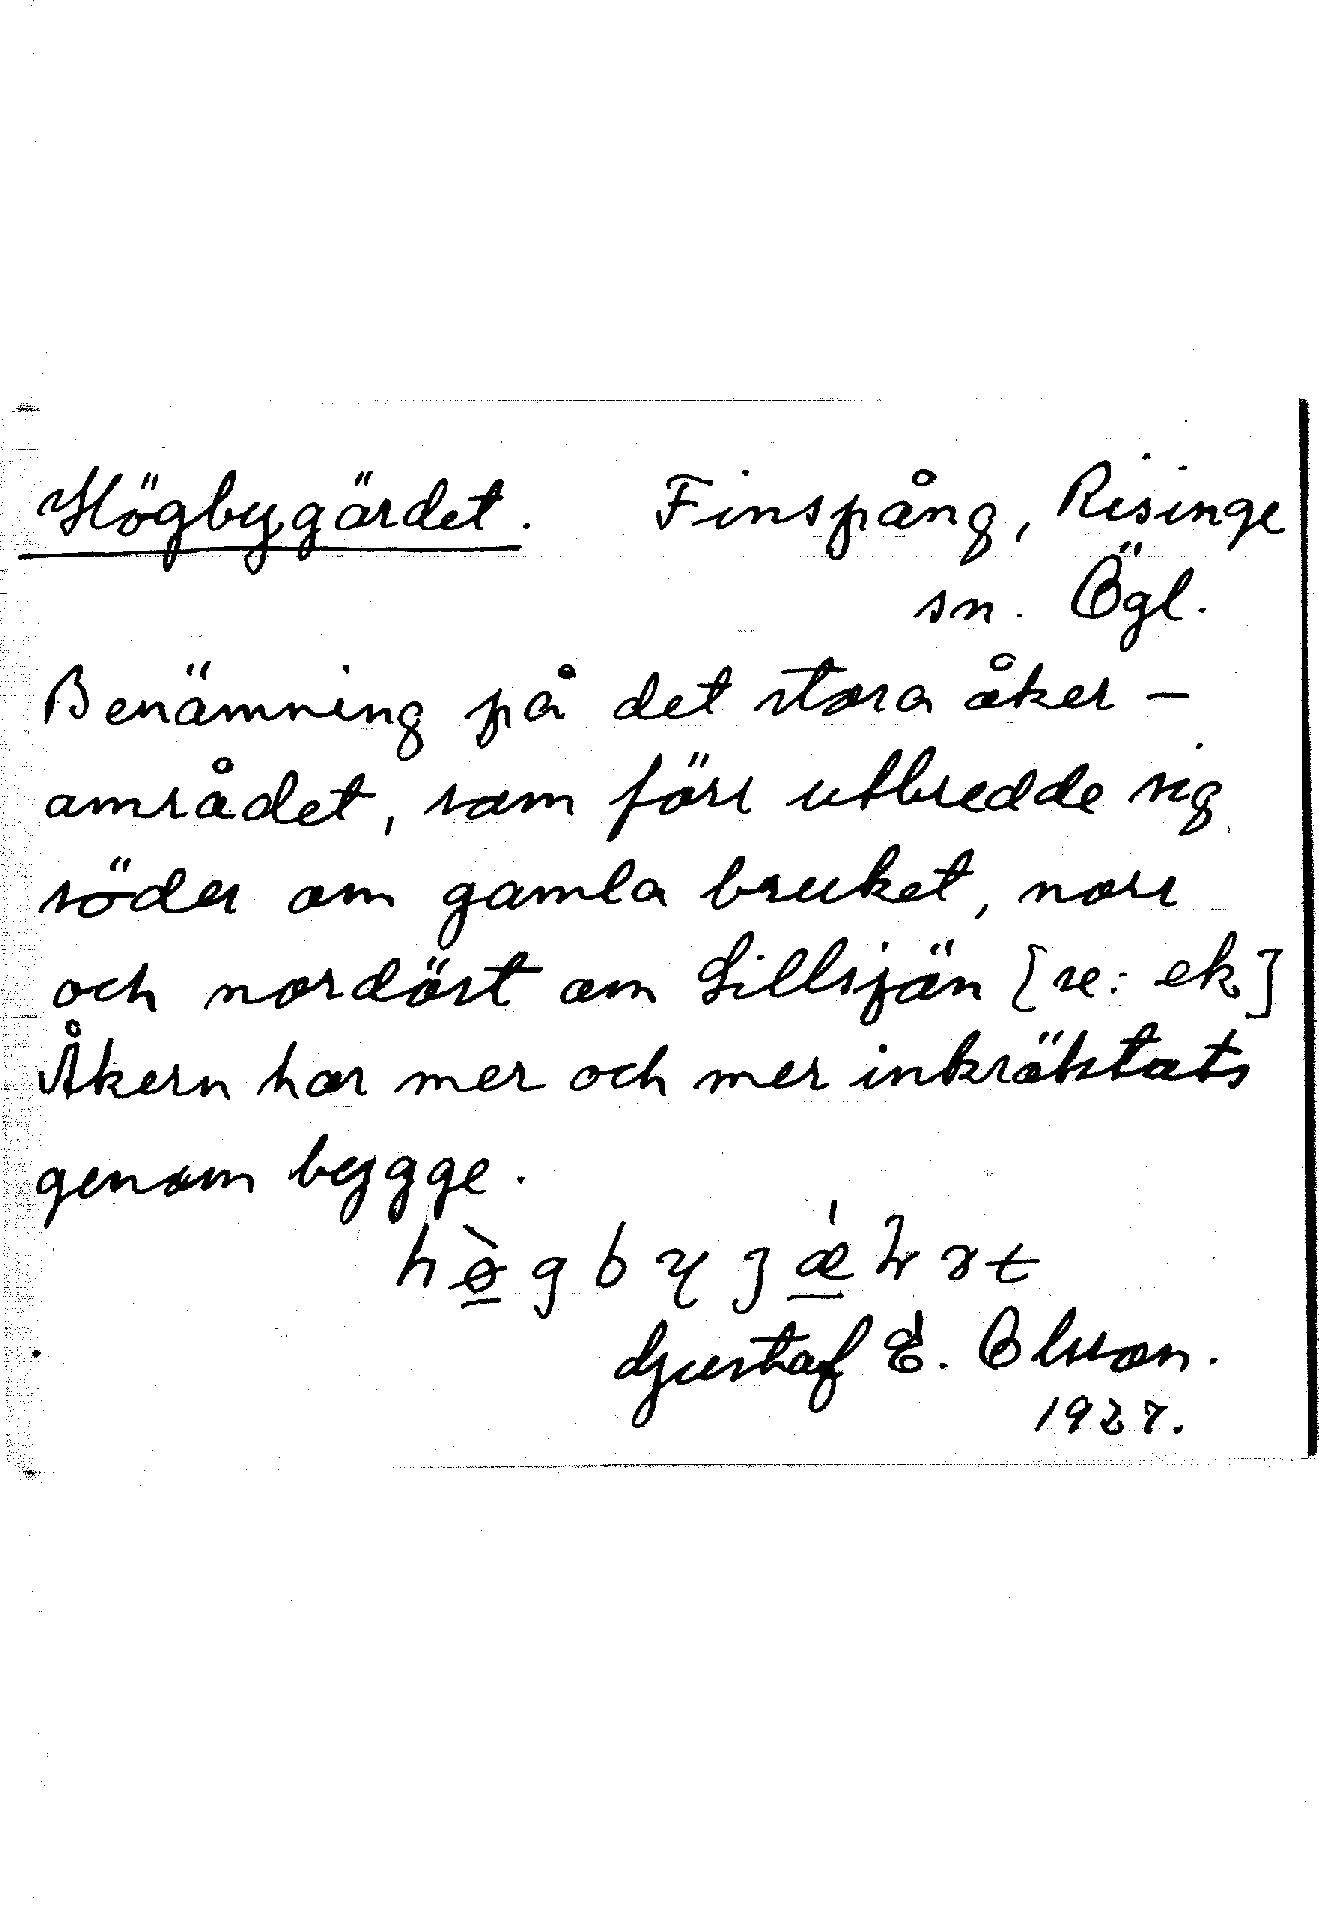 Högbygärdet. Finspång, Risinge
sn. Ögl.
Benämning på det stora åker-
området, som förr utbredde sig
söder om gamla bruket, norr
och nordöst om Lillsjön [se: ek]
Åkern har mer och mer inkräktats
genom bygge.
Gustaf E. Olsson.
1927.